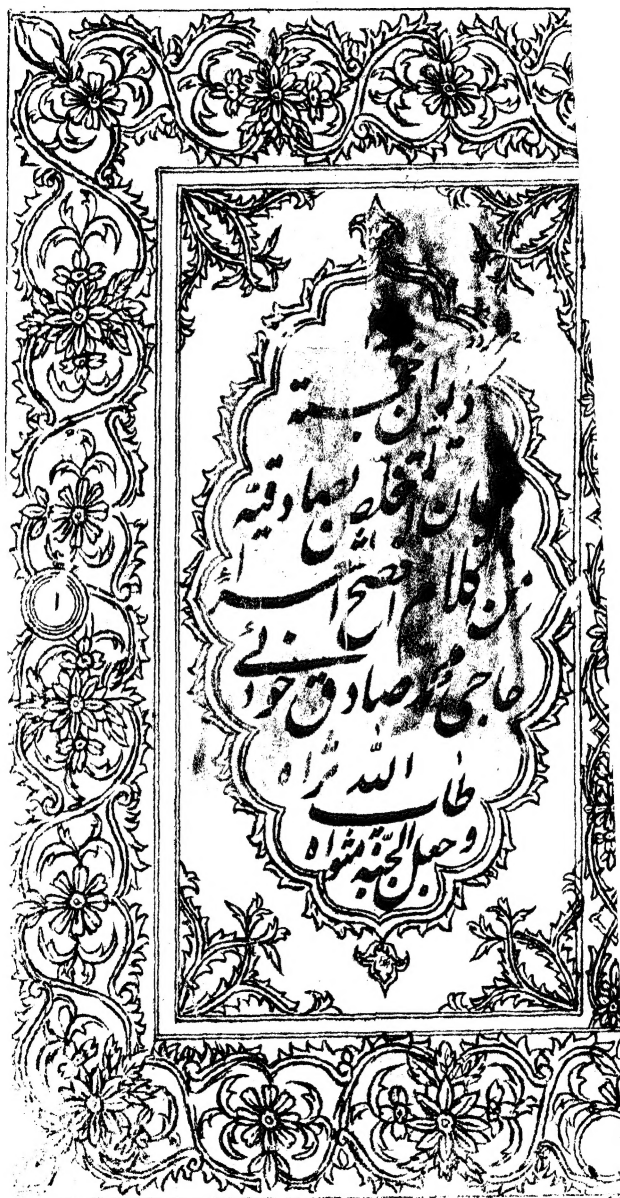 دیوان خجسته
بیان المتخلص بصادقیه
من کلام افصح الشعرا
حاجی محمد صادق
طاب الله ثراه
و جعل الجنة مثواه
۱